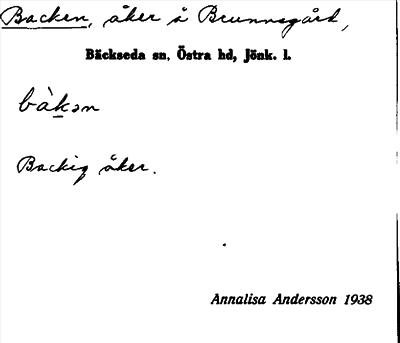 Backen, åker å Brunnsgård,
Bäckseda sn, Östra hd, Jönk. l.
bàkən
Backig åker.
Annalisa Andersson 1938